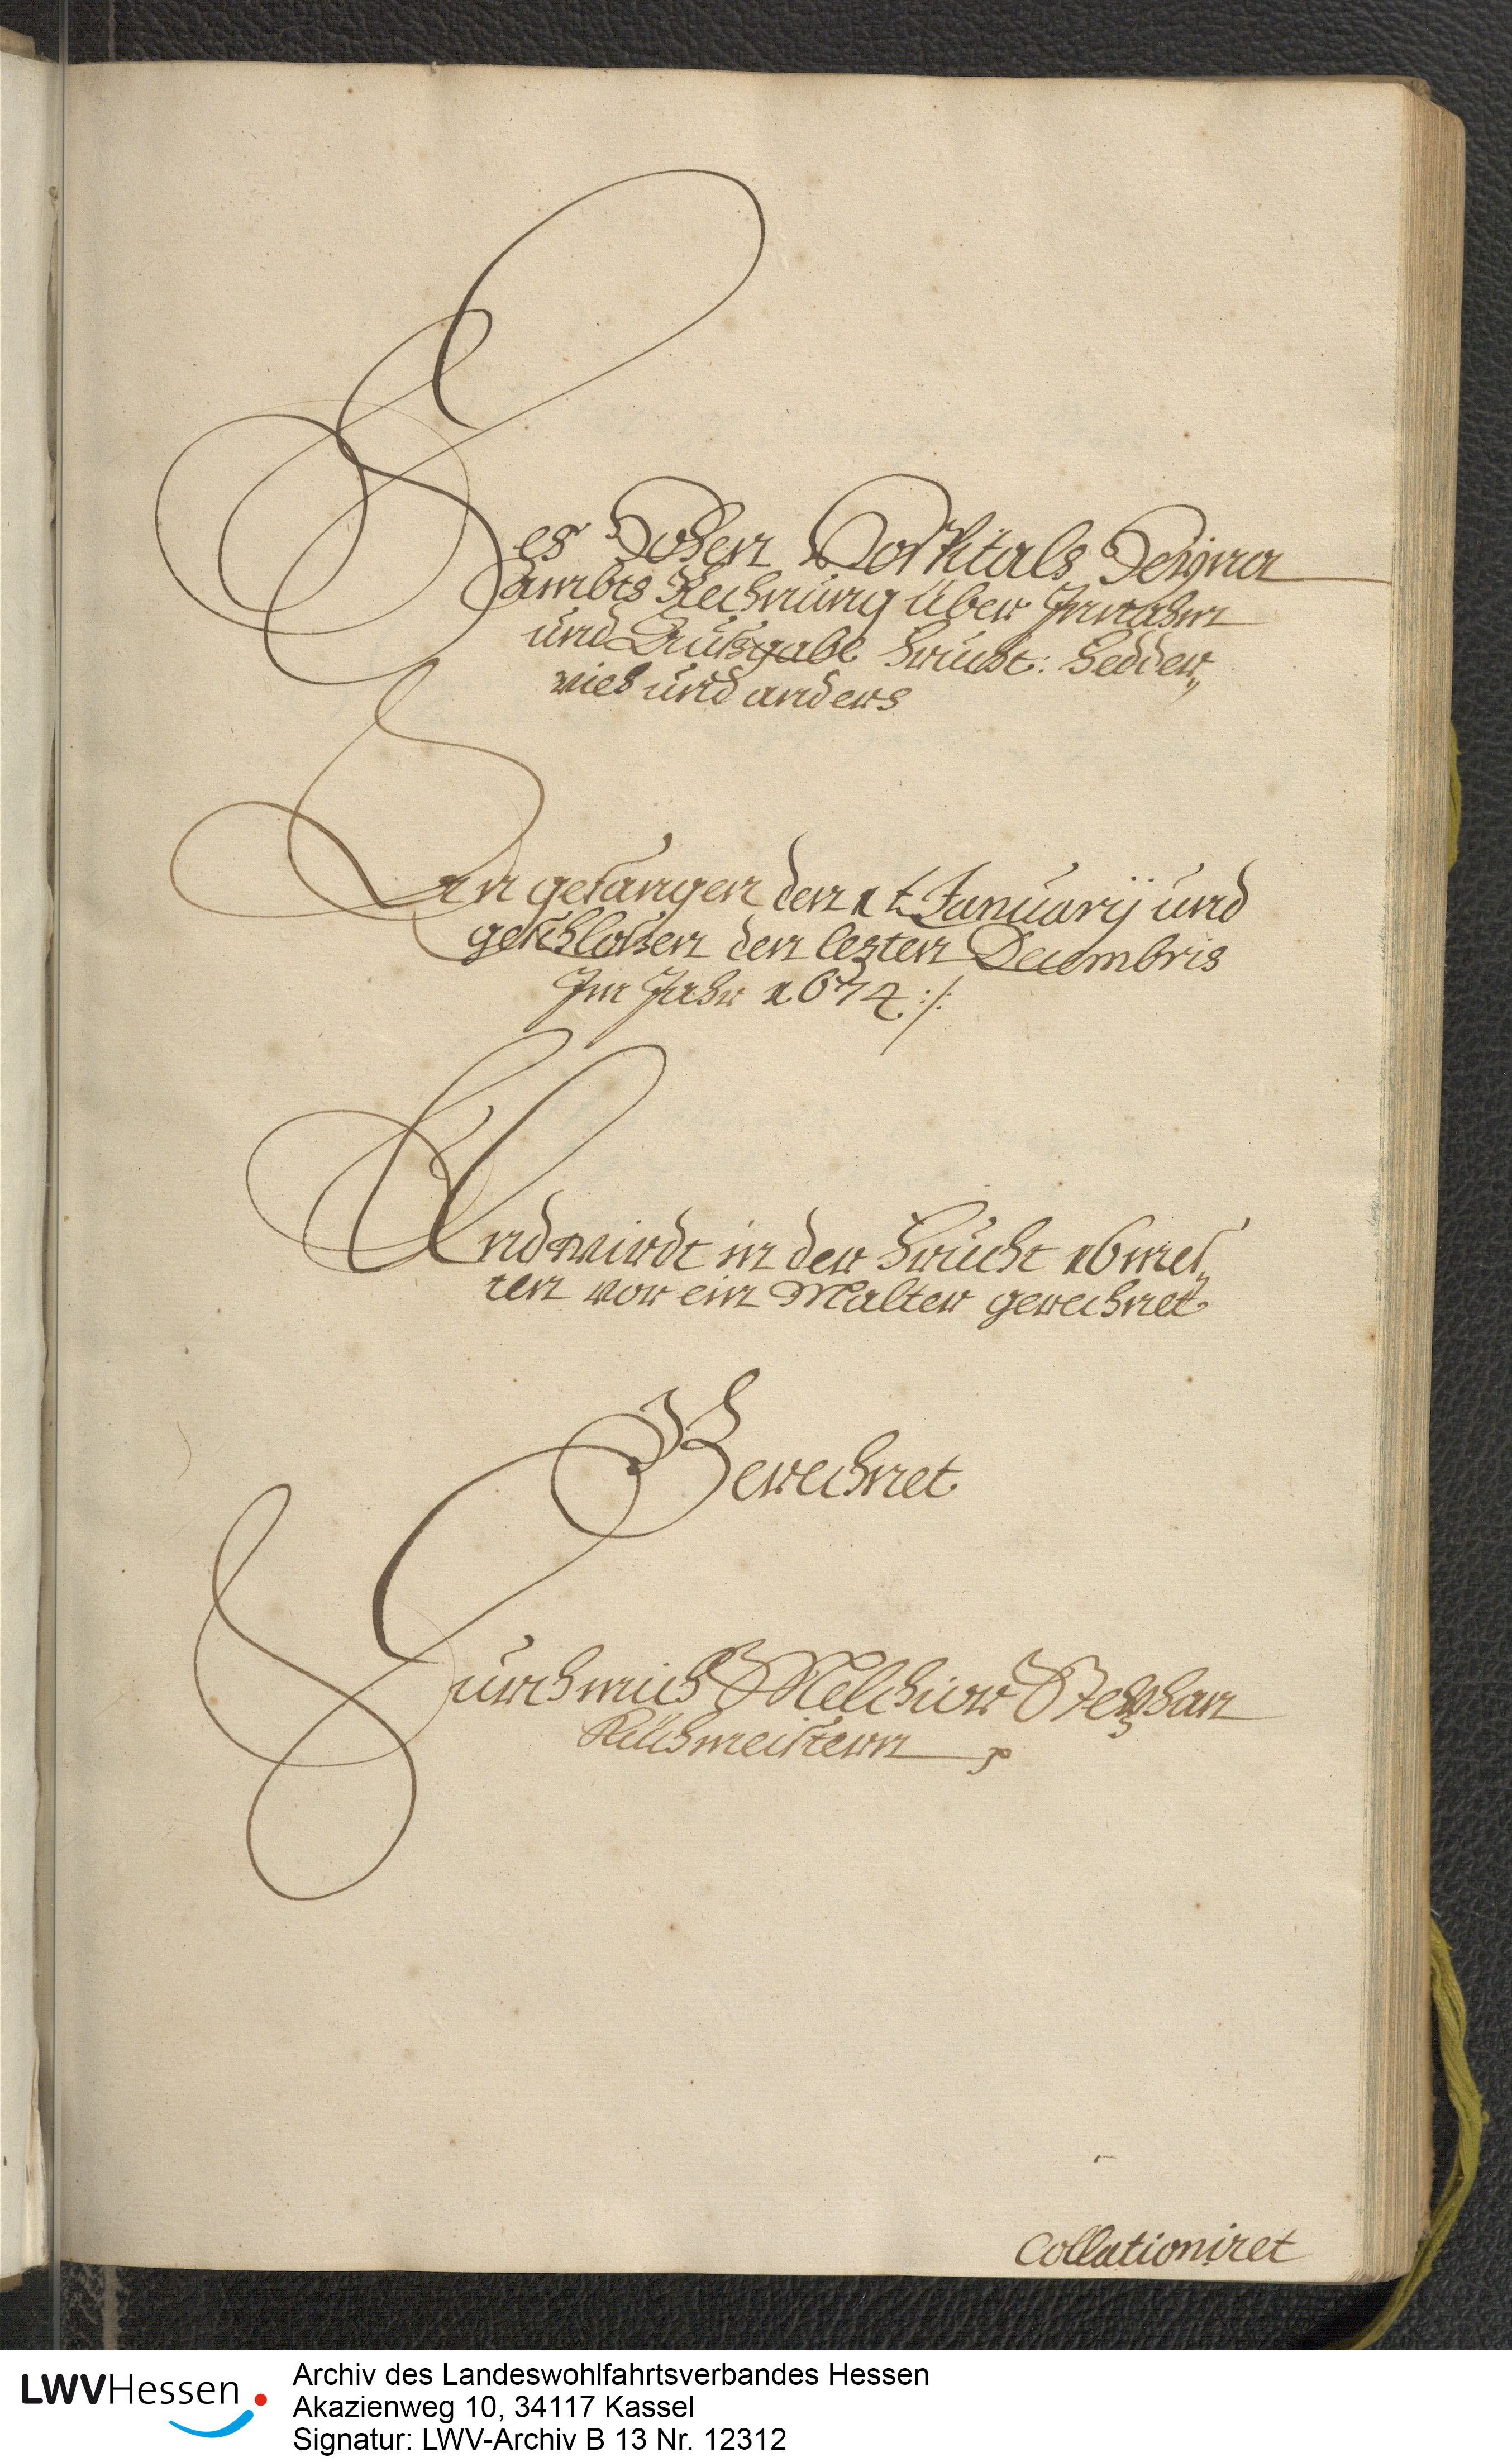 Des Hohen Hospitals Heyna
Ambts Rechnung über Innahm
und Außgabe Frucht: Fedder„
vieh und anders
Angefangen den 1t Januarÿ und
geschloßen den lezten Decembris
Im Jahr 1674 :/:
Und wirdt in der Frucht 16 mes„
ten vor ein Malter gerechnet
Berechnet
Durch mich Melchior Stephan
Küchmeistern
Collationiret
LWVHessen
Archiv des Landeswohlfahrtsverbandes Hessen
Akazienweg 10, 34117 Kassel
Signatur: LWV-Archiv B 13 Nr. 12312